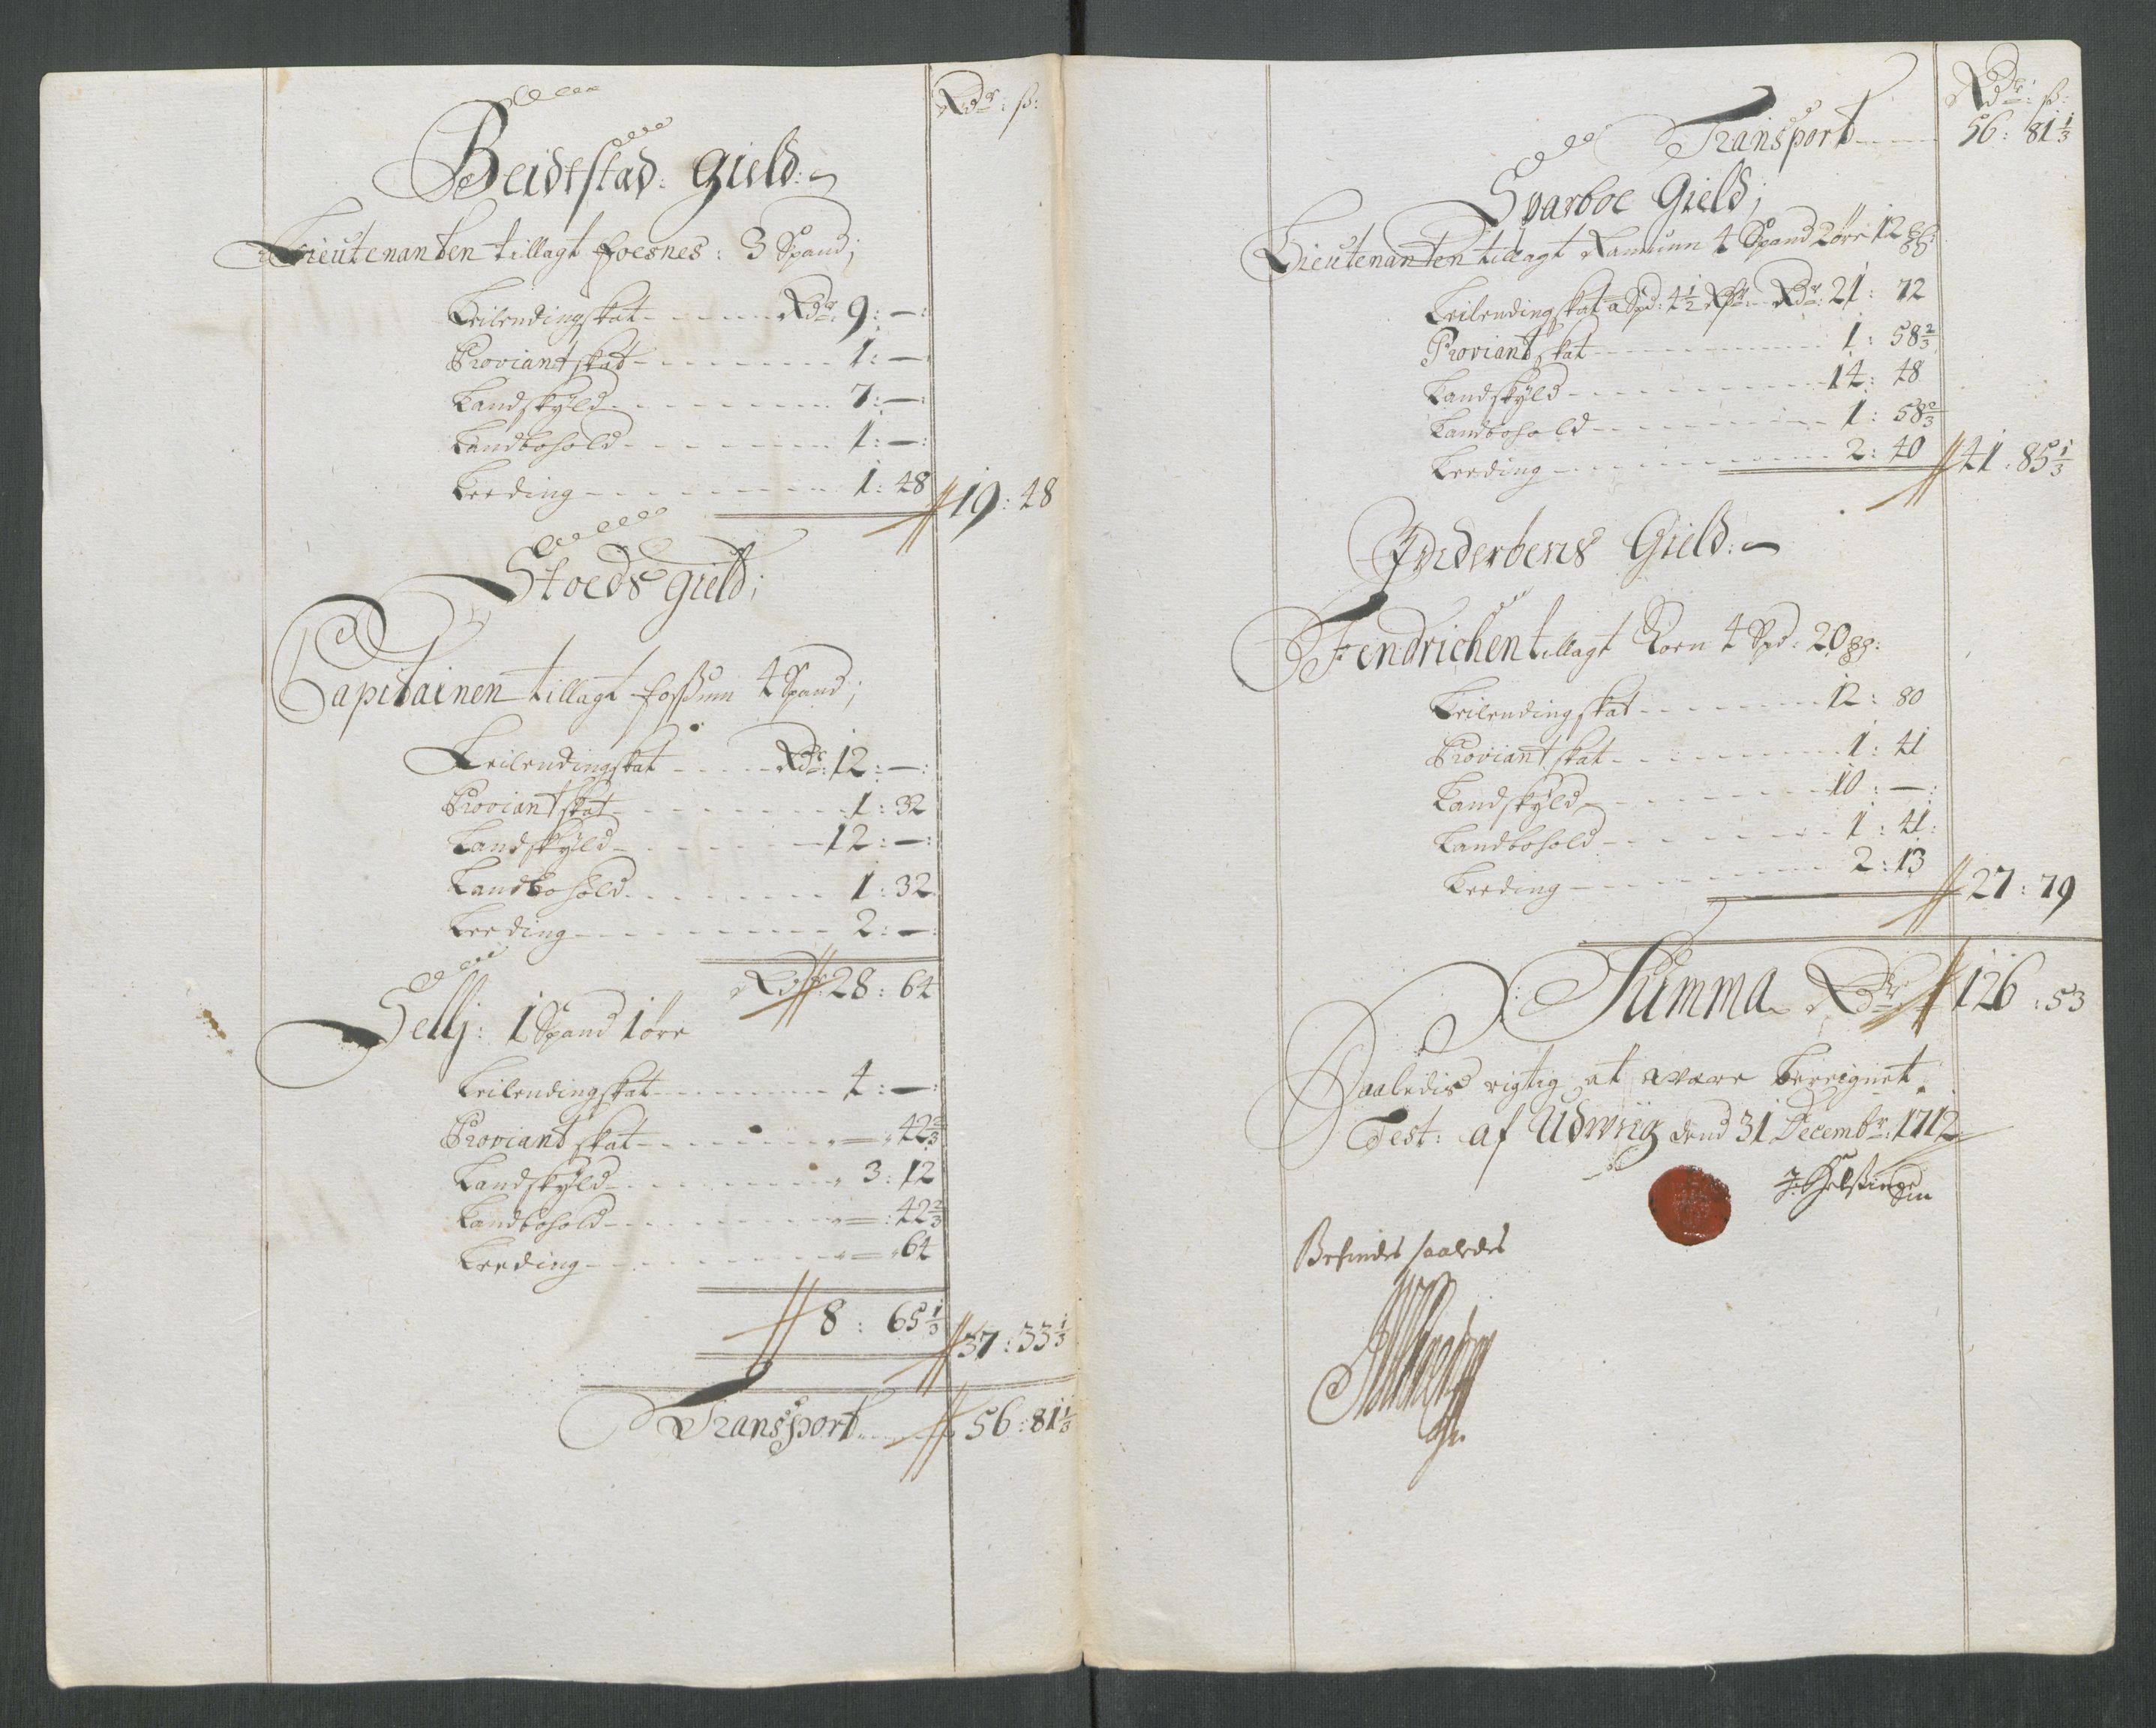 Rdr: ß:
Beidtstad: Gield:
Lieutenanten tillagt foesnes: 3 Spand;
Leilendingskat - - - - - Rdr: 9: —:
Proviantskat - - - - - - - 1: —:
Landskyld - - - - - - - 7: —:
Landbohold - - - - - - - 1: —:
Leeding - - - - - - - 1: 48
19: 48
Stoeds gield;
Capitainen tillagt fossum 4 Spand;
Leilendingskat - - - - Rdr: 12: —:
Proviantskat - - - - - - 1: 32
Landskyld - - - - - - 12: —:
Landbohold - - - - - - 1: 32
Leeding - - - - - - - 2: —:
Rdr: 28: 64
Sellj: 1 Spand 1 øre
Leilendingskat - - - - - - 4: —:
Proviantskat - - - - - - — : 42 2/3
Landskyld - - - - - - - 3: 12
Landbohold - - - - - - — : 42 2/3
Leeding - - - - - - - — : 64
8: 65 1/3
37: 33 1/3
Transport - - - - 56: 81 1/3
Rdr: ß:
Transport - - - - 56: 81 1/3
Sparboe Gield;
Lieutenanten tillagt Ramunn 4 Spand 2 øre 12
Leilendingskat a Spd: 4 1/2 Rdr: - Rdr: 21: 72
Proviantskat - - - - - - - 1: 58 2/3
Landskyld - - - - - - - 14: 48
Landbohold - - - - - - - 1: 58 2/3
Leeding - - - - - - - 2: 40
41: 85 1/3
Inderøens Gield:
Fendrichen tillagt Korn 4 Spd: 20
Leilendingskat - - - - - - 12: 80
Proviantskat - - - - - - - 1: 41
Landskyld - - - - - - - 10: —:
Landbohold - - - - - - - 1: 41:
Leeding - - - - - - - 2: 13
27: 79
Summa Rdr 126: 53
Saaledis rigtig at være bereignet
Test: af Udwiig dend 31 Decembr: 1712
Befindes saaledes